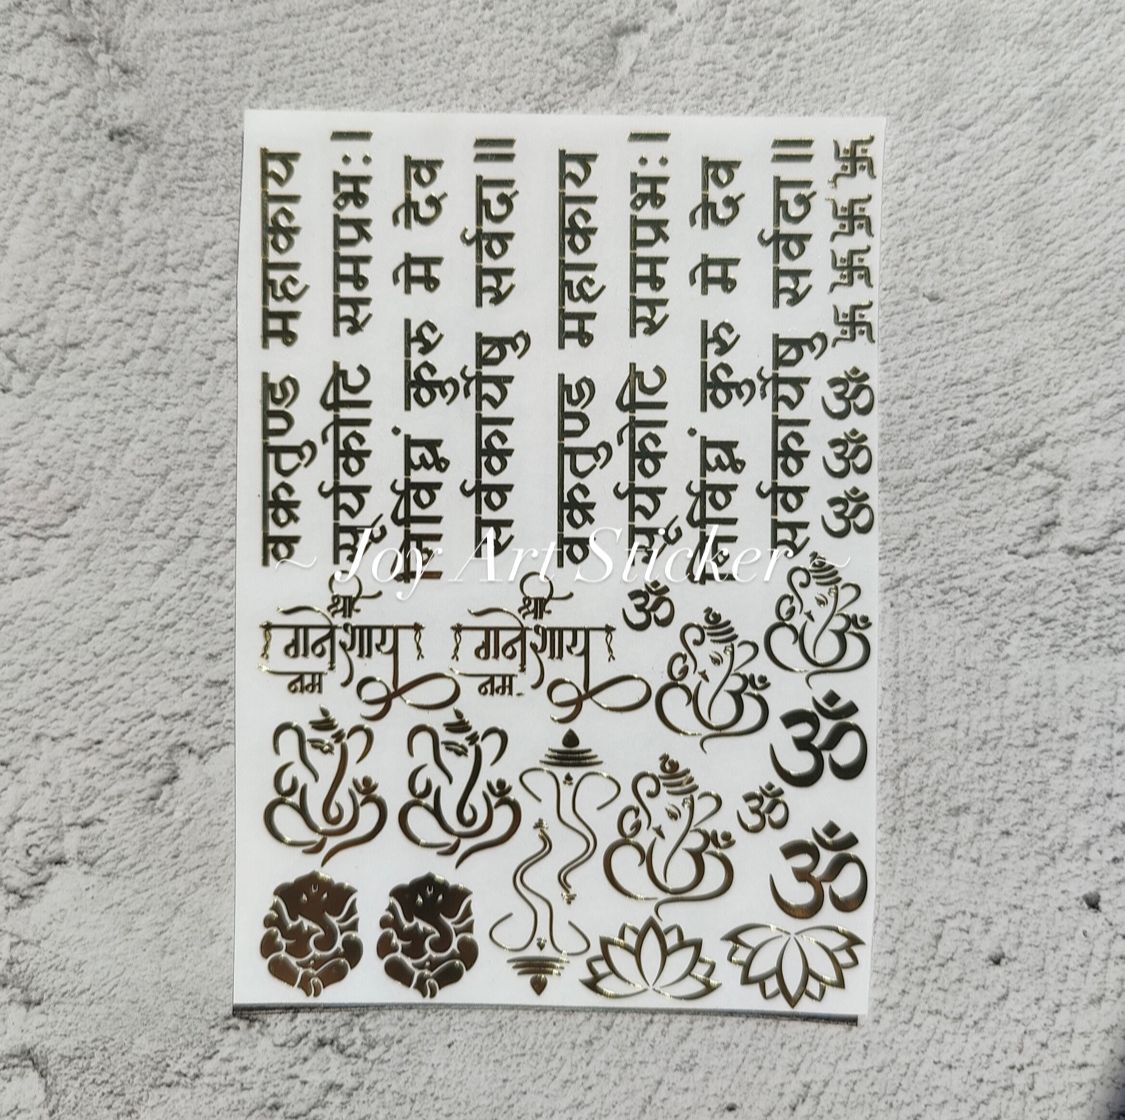 वक्रतुण्ड महाकाय
सूर्यकोटि समप्रभः।
निर्विघ्नं कुरु मे देव
सर्वकार्येषु सर्वदा॥
वक्रतुण्ड महाकाय
सूर्यकोटि समप्रभः।
निर्विघ्नं कुरु मे देव
सर्वकार्येषु सर्वदा॥
ॐ
ॐ
ॐ
~ Joy Art Sticker ~
श्री
गनेशाय
नम
श्री
गनेशाय
नम
ॐ
ॐ
ॐ
ॐ